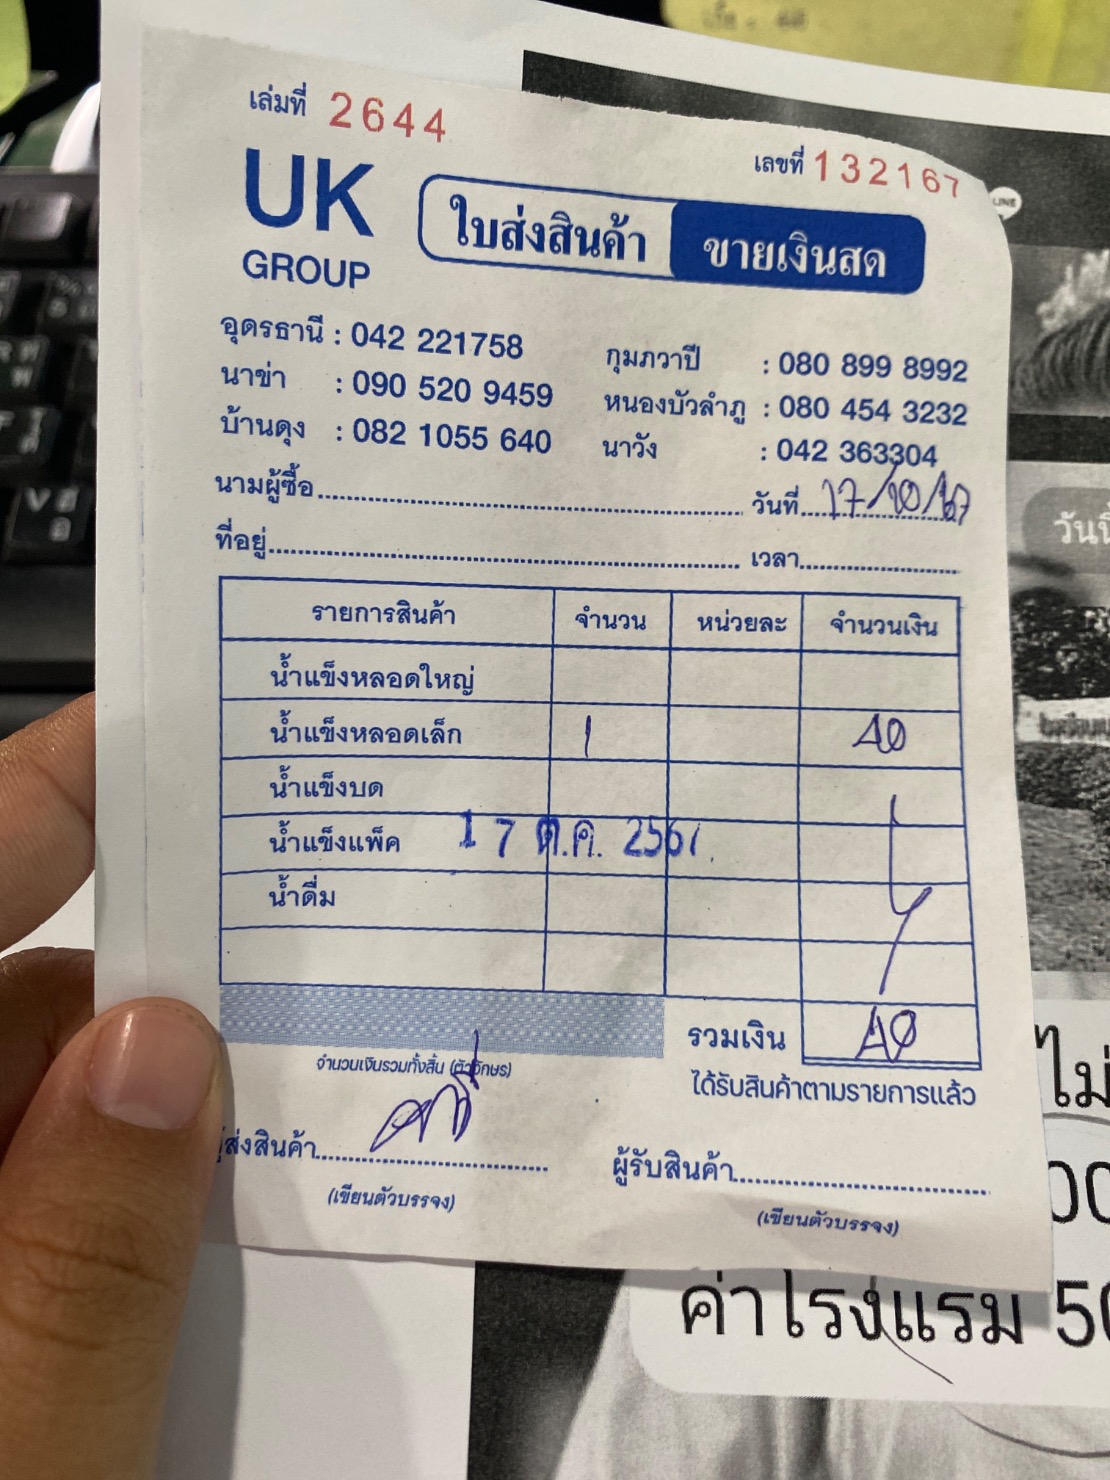 เล่มที่ 2644
เลขที่ 132167
UK
GROUP
ใบส่งสินค้า ขายเงินสด
อุดรธานี : 042 221758 กุมภวาปี : 080 899 8992
นาข่า : 090 520 9459 หนองบัวลำภู : 080 454 3232
บ้านดุง : 082 1055 640 นาวัง : 042 363304
นามผู้ซื้อ วันที่ 17/10/67
ที่อยู่ เวลา
รายการสินค้า จำนวน หน่วยละ จำนวนเงิน
น้ำแข็งหลอดใหญ่
น้ำแข็งหลอดเล็ก 1 40
น้ำแข็งบด
น้ำแข็งแพ็ค 17 ต.ค. 2567
น้ำดื่ม
รวมเงิน 40
จำนวนเงินรวมทั้งสิ้น (ตัวอักษร)
ได้รับสินค้าตามรายการแล้ว
ผู้ส่งสินค้า ผู้รับสินค้า
(เขียนตัวบรรจง) (เขียนตัวบรรจง)
LINE
ไม่
ค่าโรงแรม